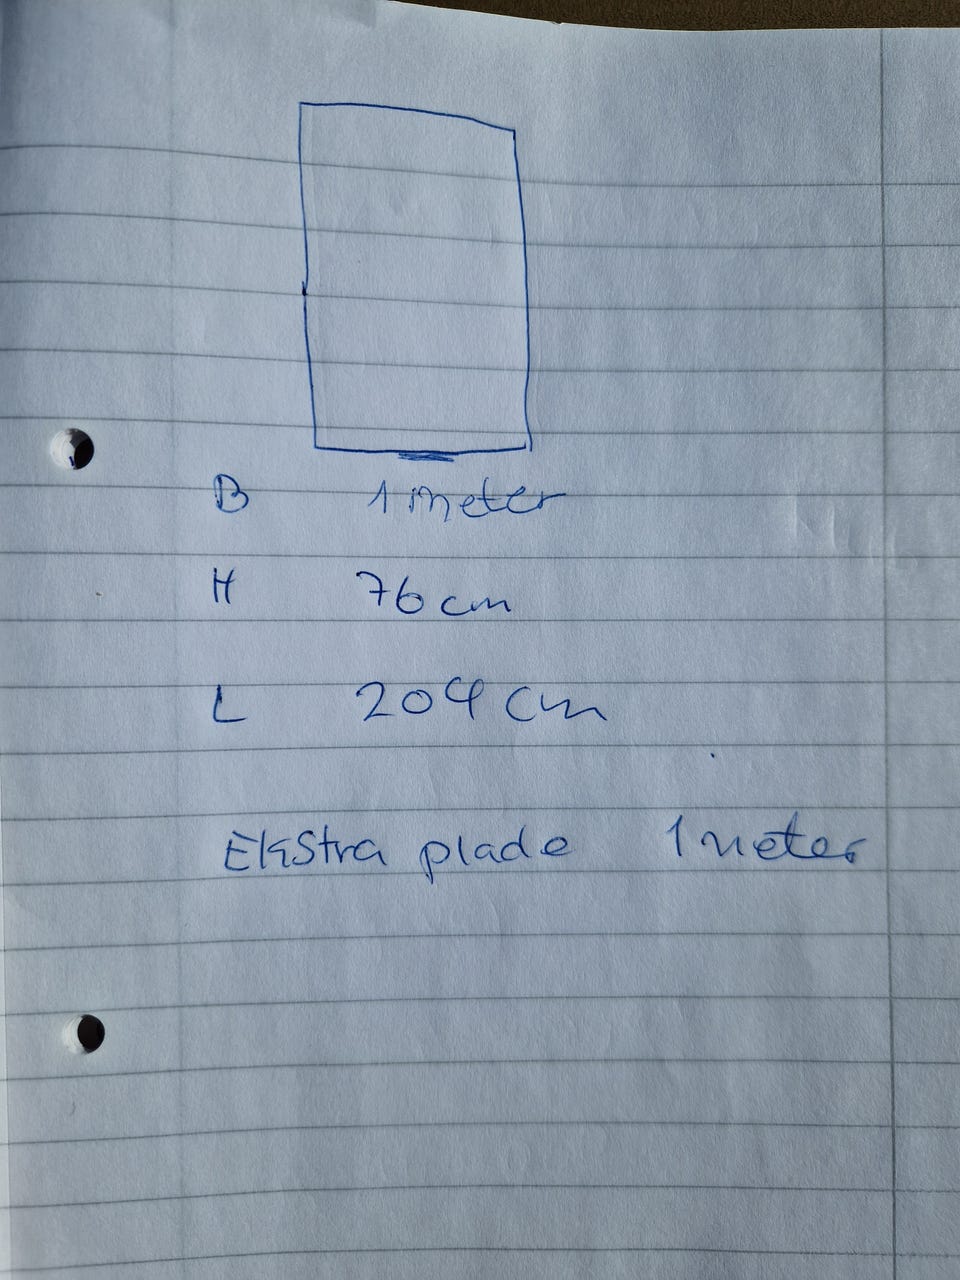 B 1 meter
H 76 cm
L 204 cm
Ekstra plade 1 meter